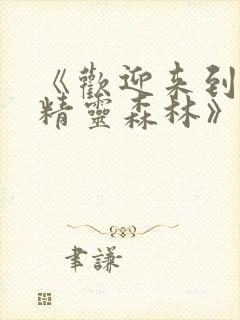 《歡迎来到
精靈森林》
聿謙